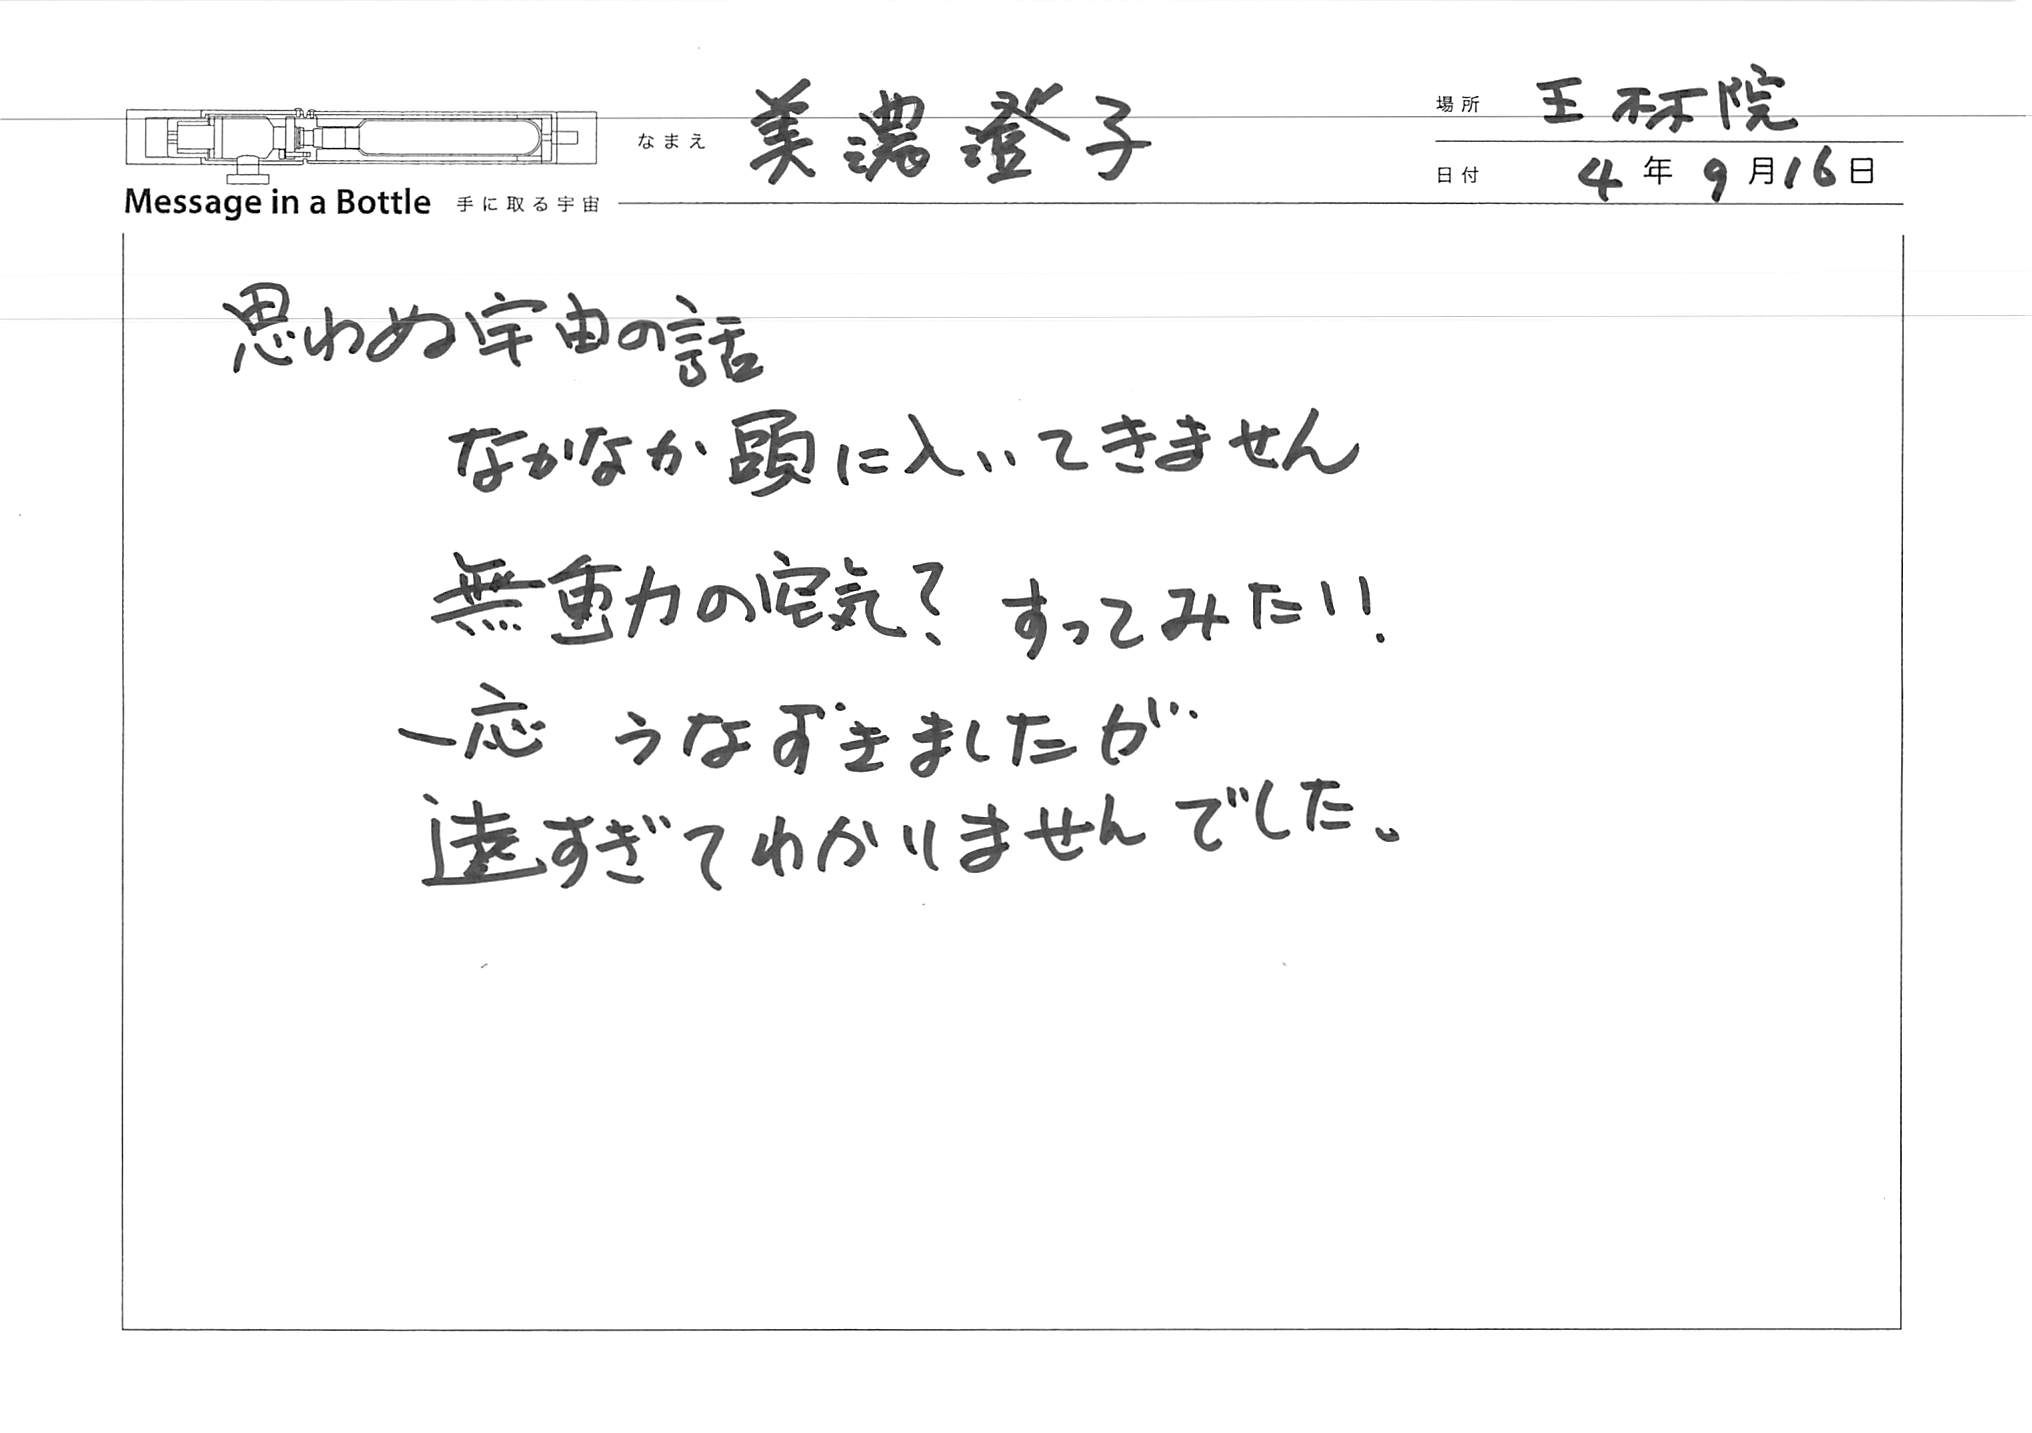 なまえ 美濃澄子
場所 王林院
日付 4年9月16日
Message in a Bottle 手に取る宇宙
思わぬ宇宙の話
なかなか頭に入いてきません
無重力の空気? すってみたい!
一応 うなずきましたが
遠すぎてわかりませんでした。